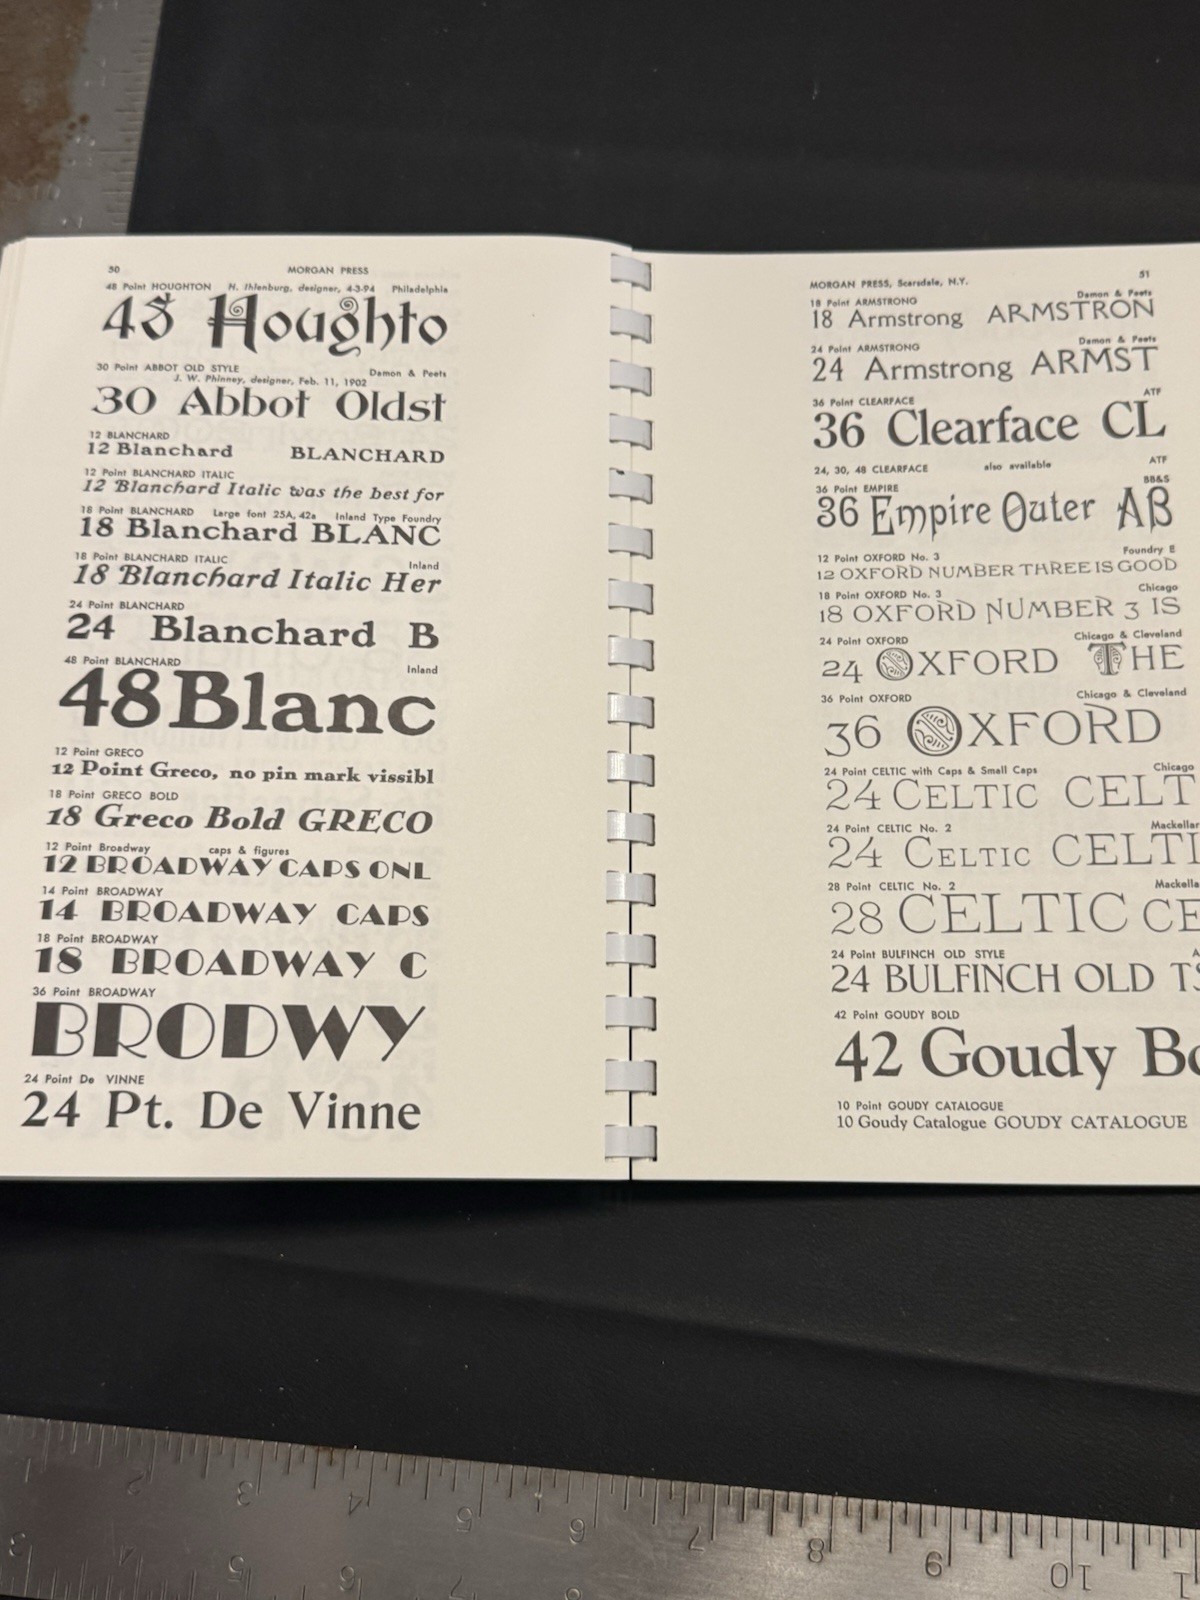 50 MORGAN PRESS
48 Point HOUGHTON N. Ihlenburg, designer, 4-3-94 Philadelphia
48 Houghto
30 Point ABBOT OLD STYLE Damon & Peets
J. W. Phinney, designer, Feb. 11, 1902
30 Abbot Oldst
12 BLANCHARD
12 Blanchard BLANCHARD
12 Point BLANCHARD ITALIC
12 Blanchard Italic was the best for
18 Point BLANCHARD Large font 25A, 42a Inland Type Foundry
18 Blanchard BLANC
18 Point BLANCHARD ITALIC Inland
18 Blanchard Italic Her
24 Point BLANCHARD
24 Blanchard B
48 Point BLANCHARD Inland
48 Blanc
12 Point GRECO
12 Point Greco, no pin mark vissibl
18 Point GRECO BOLD
18 Greco Bold GRECO
12 Point Broadway caps & figures
12 BROADWAY CAPS ONL
14 Point BROADWAY
14 BROADWAY CAPS
18 Point BROADWAY
18 BROADWAY C
36 Point BROADWAY
BRODWY
24 Point De VINNE
24 Pt. De Vinne
MORGAN PRESS, Scarsdale, N.Y. 51
18 Point ARMSTRONG Damon & Peets
18 Armstrong ARMSTRON
24 Point ARMSTRONG Damon & Peets
24 Armstrong ARMST
36 Point CLEARFACE ATF
36 Clearface CL
24, 30, 48 CLEARFACE also available ATF
36 Point EMPIRE BB&S
36 Empire Outer AB
12 Point OXFORD No. 3 Foundry E
12 OXFORD NUMBER THREE IS GOOD
18 Point OXFORD No. 3 Chicago
18 OXFORD NUMBER 3 IS
24 Point OXFORD Chicago & Cleveland
24 OXFORD THE
36 Point OXFORD Chicago & Cleveland
36 OXFORD
24 Point CELTIC with Caps & Small Caps Chicago
24 CELTIC CELT
24 Point CELTIC No. 2 Mackellar
24 CELTIC CELTI
28 Point CELTIC No. 2 Mackella
28 CELTIC CE
24 Point BULFINCH OLD STYLE A
24 BULFINCH OLD TS
42 Point GOUDY BOLD
42 Goudy Bo
10 Point GOUDY CATALOGUE
10 Goudy Catalogue GOUDY CATALOGUE
2 3 4 5 6 7 8 9 10 1
3 4 5 6 7 8